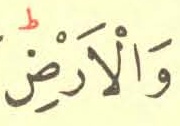 وَالْاَرْضِؕ